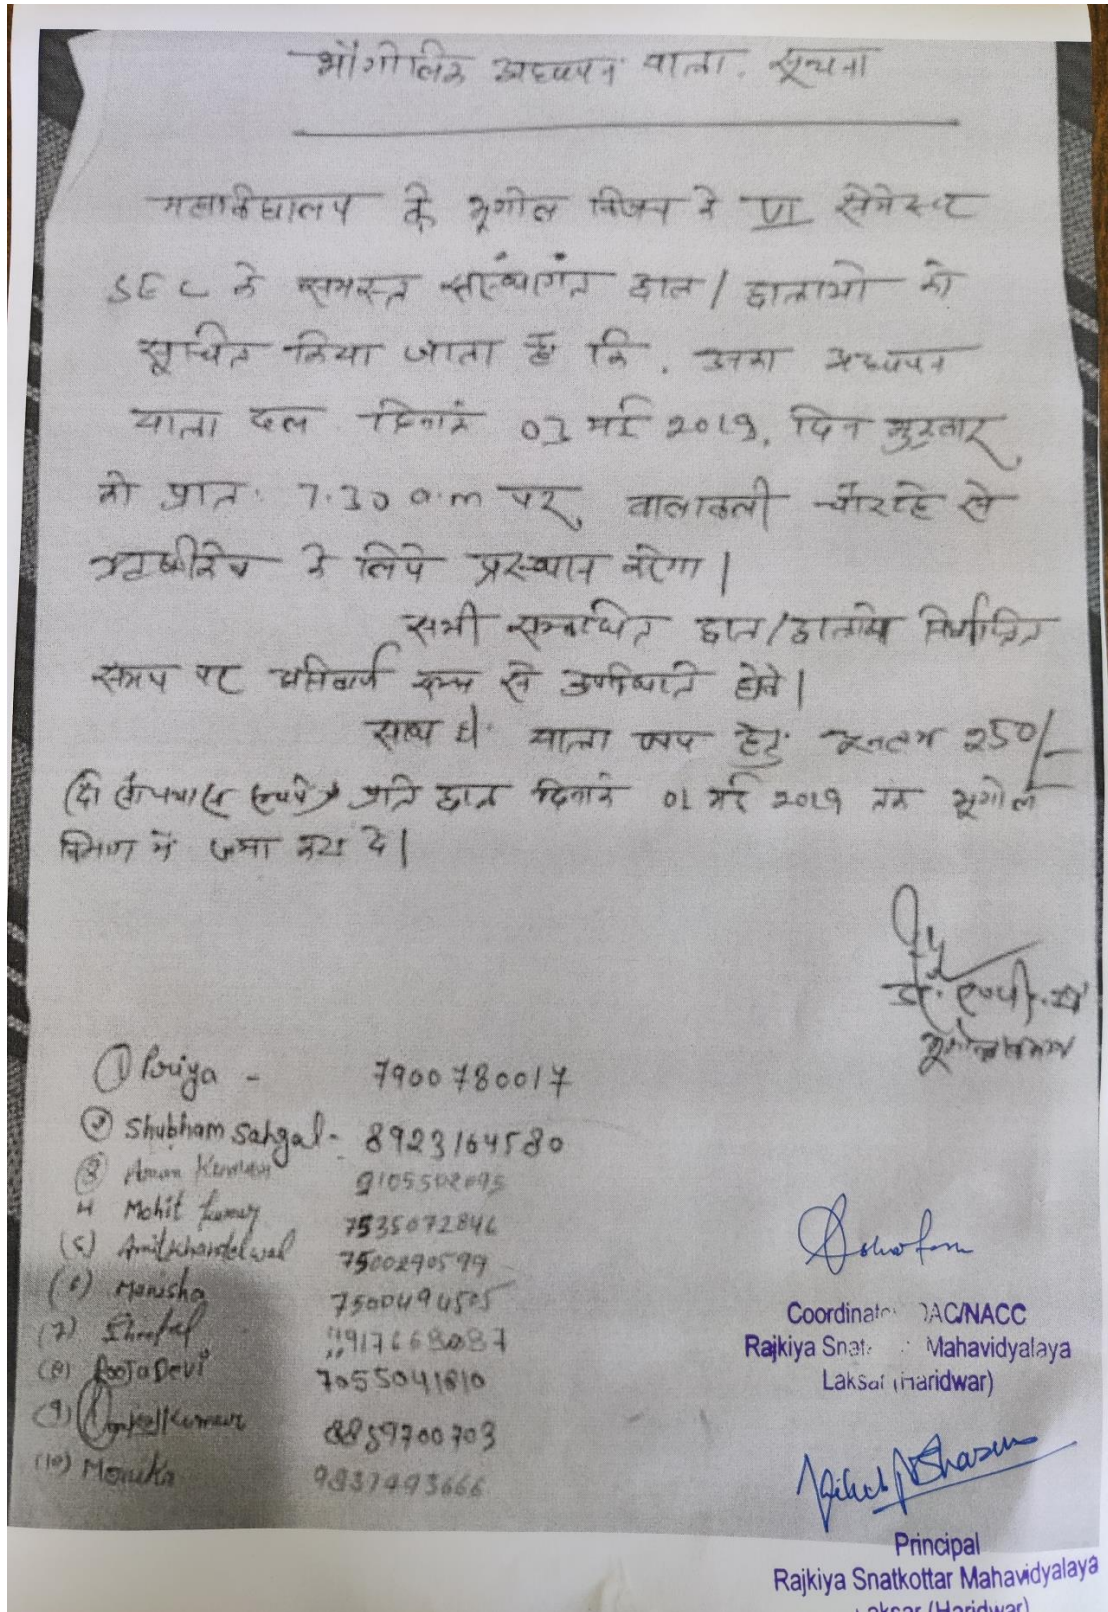 भौगोलिक अध्ययन यात्रा. सूचना
महाविद्यालय के भूगोल विषय के VI सेमेस्टर
SEC के समस्त संस्थागत छात्र / छात्राओ को
सूचित किया जाता है कि. उनका अध्ययन
यात्रा दल दिनांक 03 मई 2019, दिन
को प्रात: 7.30 a.m पर, बालावली चौराहे से
के लिये प्रस्थान करेगा |
सभी सम्बन्धित छात्र/छात्रायें निर्धारित
समय पर अनिवार्य रूप से उपस्थित होवे |
साथ ही यात्रा व्यय हेतु 250/-
(दो सौ पचास रूपये) प्रति छात्र दिनांक 01 मई 2019 तक भूगोल
विभाग में जमा करा दे |
डॉ.
① Priya - 7900780017
② Shubham Sahgal - 8923164580
③ Aman Kumar
4 Mohit Kumar 7535072846
(5) Amit Khandelwal 7500290599
(6) Manisha 7500494505
(7)
(8) Pooja Devi 7055041810
(9) Kumar 8859700703
(10) Monika 9837493666
Coordinator /NACC
Rajkiya Mahavidyalaya
Laksar (Haridwar)
Principal
Rajkiya Snatkottar Mahavidyalaya
Laksar (Haridwar)